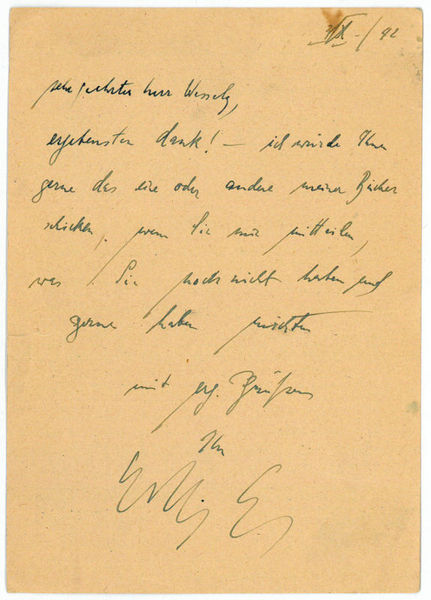 IX - / 42
sehr geehrter Herr Wessely,
ergebensten dank! — ich würde Ihnen
gerne das eine oder andere meiner Bücher
schicken, wenn Sie mir mitteilen,
was Sie noch nicht haben und
gerne haben möchten
mit erg. Grüßen
Ihr